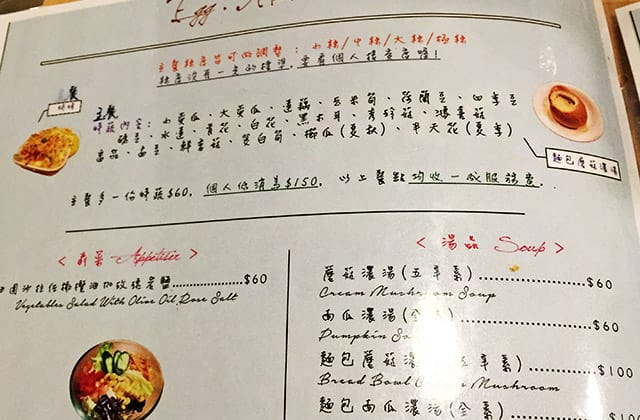 主餐辣度皆可做調整：小辣/中辣/大辣/極辣
辣度沒有一定的標準，要看個人接受度喔！
主餐
時蔬內含：小黃瓜、大黃瓜、蓮藕、玉米筍、荷蘭豆、四季豆
豌豆、水蓮、青花、白花、黑木耳、杏鮑菇、鴻喜菇
南瓜、毛豆、鮮香菇、茭白筍、櫛瓜(夏秋)、半天花(夏季)
麵包蘑菇濃湯
主餐多一份時蔬$60，個人低消為$150，以上餐點均收一成服務費．
<前菜 Appetizer>
田園沙拉佐橄欖油加玫瑰岩鹽 $60
Vegetables Salad With Olive Oil, Rose Salt
<湯品 Soup>
蘑菇濃湯(五辛素) $60
Cream Mushroom Soup
南瓜濃湯(全素) $60
Pumpkin
麵包蘑菇 五辛素) $100
Bread Bowl Mushroom
麵包南瓜濃湯(全素) $100